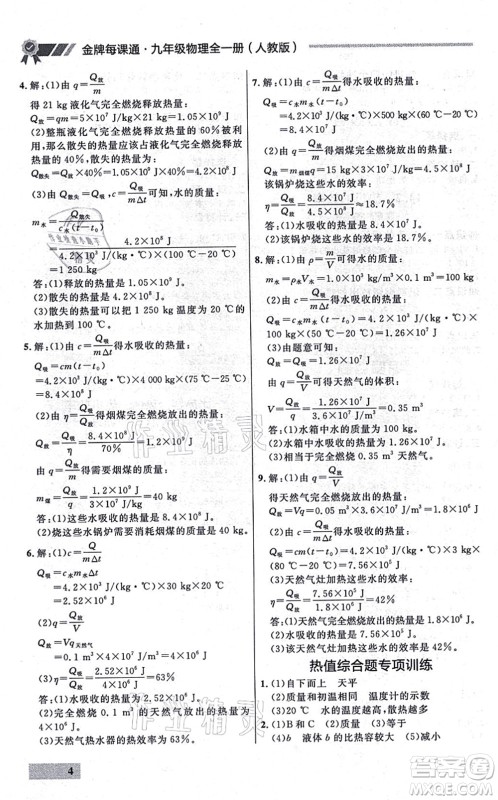 金牌每课通·九年级物理全一册(人教版)
4. 解:(1)由 q=Q放/m
得 21 kg 液化气完全燃烧释放的热量:
Q放=qm=1.05×10⁹ J
(2)整瓶液化气完全燃烧释放热量的 60%被利
用,散失的热量应该占液化气完全燃烧
释放热量的 40%,散失的热量:
Q散失=Q放×40%=1.05×10⁹ J×40%=4.2×10⁸ J
(3)由 c=Q吸/mΔt 可知,水的质量:
m水=Q散失/c水(t-t₀)
4.2×10⁸ J/4.2×10³ J/(kg·℃)×(100℃-20℃)
=1 250 kg
答:(1)释放的热量是 1.05×10⁹ J。
(2)散失的热量是 4.2×10⁸ J。
(3)散失的热量可以把 1 250 kg、温度为 20 ℃的
水加热到 100 ℃。
5. 解:(1)由 c=Q吸/mΔt 得水吸收的热量:
Q吸=cm(t-t₀)
=4.2×10³ J/(kg·℃)×4 000 kg×(75 ℃-25 ℃)
=8.4×10⁸ J
(2)由 η=Q吸/Q放 得烟煤完全燃烧放出的热量:
Q放=Q吸/η=8.4×10⁸ J/70%=1.2×10⁹ J
由 q=Q放/m 得需要烟煤的质量:
m煤=Q放/q=1.2×10⁹ J/3×10⁷ J/kg=40 kg
答:(1)这些水吸收的热量是 8.4×10⁸ J。
(2)烧这些水锅炉需要消耗烟煤的质量是 40 kg。
6. 解:(1)c=Q/mΔt
Q吸=c水m水Δt
=4.2×10³ J/(kg·℃)×20 kg×30 ℃
=2.52×10⁶ J
(2)由 q=Q/V
Q放=Vq天然气
=0.1 m³×4×10⁷ J/m³=4×10⁶ J
(3)η=Q吸/Q放×100%=2.52×10⁶ J/4×10⁶ J=63%
答:(1)水吸收的热量是 2.52×10⁶ J。
(2)完全燃烧 0.1 m³ 的天然气放出的热量是
4×10⁶ J。
(3)天然气热水器的效率为 63%。
7. 解:(1)由 c=Q吸/mΔt 得水吸收的热量:
Q吸=c水m水(t-t₀)
=4.2×10³ J/(kg·℃)×500 kg×(60 ℃-20 ℃)
=8.4×10⁷ J
(2)由 q=Q放/m 得烟煤完全燃烧放出的热量:
Q放=qm=15 kg×3×10⁷ J/kg=4.5×10⁸ J
该锅炉烧这些水的效率:
η=Q吸/Q放=8.4×10⁷ J/4.5×10⁸ J≈18.7%。
答:(1)这些水吸收的热量是 8.4×10⁷ J。
(2)该锅炉烧这些水的效率是 18.7%。
8. 解:(1)由 ρ=m/V 可得水的质量:
m水=ρ水V水=1×10³ kg/m³×0.1 m³=100 kg
(2)由 c=Q吸/mΔt 得水吸收的热量:
Q吸=c水m水(t-t₀)=4.2×10³ J/(kg·℃)×
100 kg×(50 ℃-20 ℃)=1.26×10⁷ J
(3)由题意可知:Q放=Q吸=1.26×10⁷ J
由 q=Q放/V 得天然气的体积:
V=Q放/q=1.26×10⁷ J/3.6×10⁷ J/m³=0.35 m³
答:(1)水箱中水的质量为 100 kg。
(2)水箱中的水吸收的热量是 1.26×10⁷ J。
(3)相当于完全燃烧 0.35 m³ 的天然气。
9. 解:(1)由 q=Q放/V 得完全燃烧天然气放出的
热量:
Q放=Vq=0.05 m³×3.6×10⁷ J/m³=1.8×10⁶ J
(2)由 c=Q吸/mΔt 得水吸收的热量:
Q吸=cm(t-t₀)
=4.2×10³ J/(kg·℃)×3 kg×(80 ℃-20 ℃)
=7.56×10⁵ J
(3)天然气灶加热这些水的效率:
η=Q吸/Q放=7.56×10⁵ J/1.8×10⁶ J=42%
答:(1)天然气完全燃烧放出的热量是 1.8×10⁶ J。
(2)水吸收的热量是 7.56×10⁵ J。
(3)天然气灶加热这些水的效率是 42%。
热值综合题专项训练
1. (1)自下而上 天平
(3)升高的温度 温度计的示数
2. (1)B 和 C (2)质量 (3)等于
(4)b 液体 b 的比热容较大 (5)减小
4
作业精灵
作业精灵